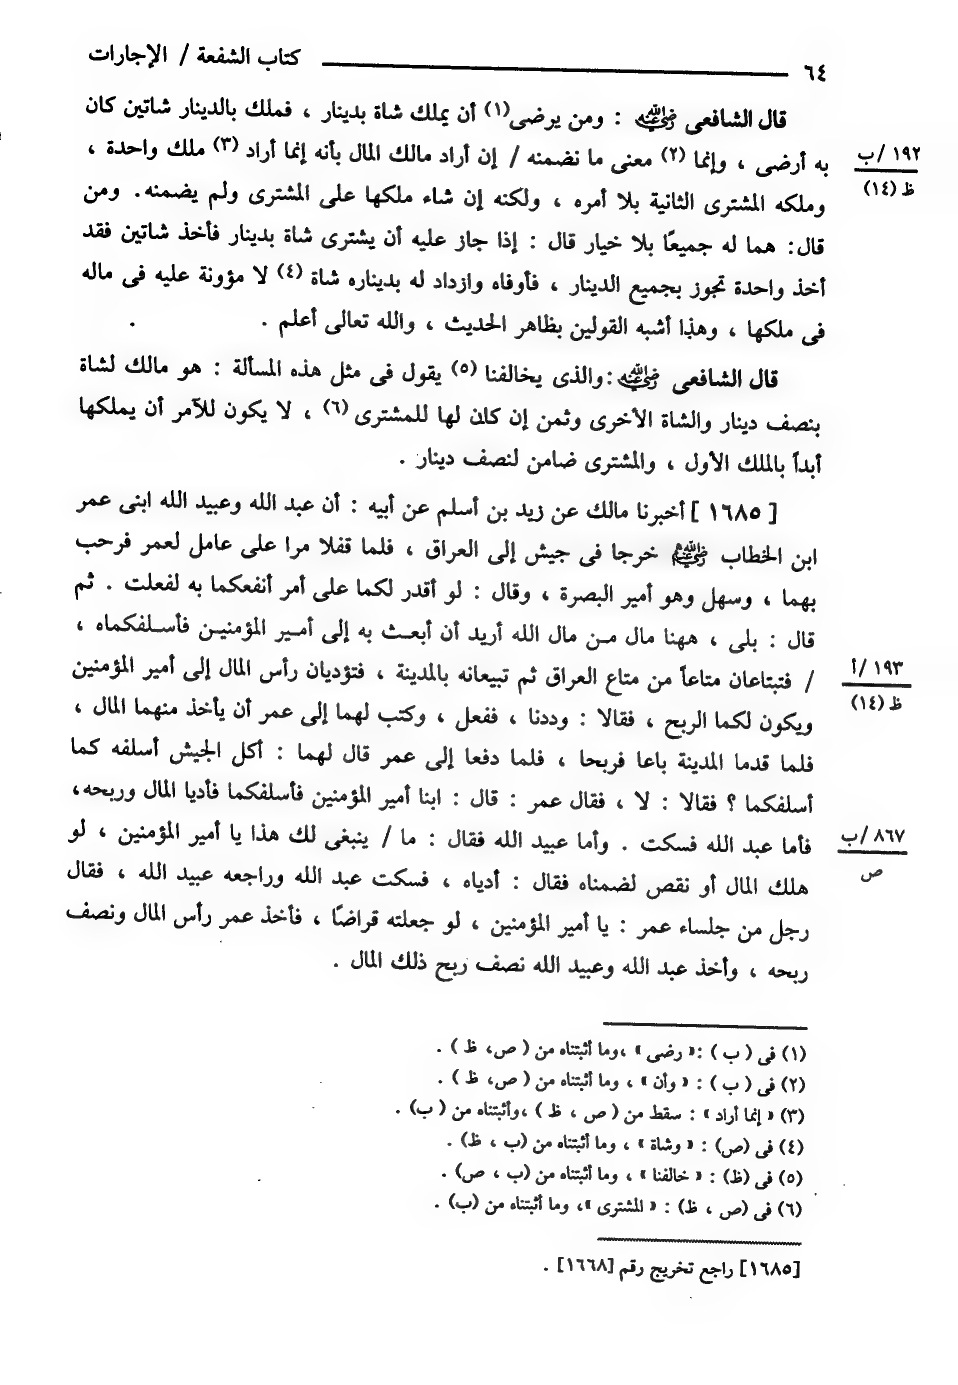 ٦٤ كتاب الشفعة / الإجارات
قال الشافعى رضي الله عنه : ومن يرضى(١) أن يملك شاة بدينار ، فملك بالدينار شاتين كان
به أرضى ، وإنما (٢) معنى ما نضمنه / إن أراد مالك المال بأنه إنما أراد (٣) ملك واحدة ،
١٩٢/ب
ظ (١٤)
وملكه المشترى الثانية بلا أمره ، ولكنه إن شاء ملكها على المشترى ولم يضمنه. ومن
قال: هما له جميعًا بلا خيار قال : إذا جاز عليه أن يشترى شاة بدينار فأخذ شاتين فقد
أخذ واحدة تجوز بجميع الدينار ، فأوفاه وازداد له بديناره شاة (٤) لا مؤونة عليه فى ماله
فى ملكها ، وهذا أشبه القولين بظاهر الحديث ، والله تعالى أعلم .
قال الشافعى رضي الله عنه :والذى يخالفنا (٥) يقول فى مثل هذه المسألة : هو مالك لشاة
بنصف دينار والشاة الأخرى وثمن إن كان لها للمشترى (٦) ، لا يكون للآمر أن يملكها
أبداً بالملك الأول ، والمشترى ضامن لنصف دينار .
[ ١٦٨٥ ] أخبرنا مالك عن زيد بن أسلم عن أبيه : أن عبد الله وعبيد الله ابنى عمر
ابن الخطاب رضي الله عنهم خرجا فى جيش إلى العراق ، فلما قفلا مرا على عامل لعمر فرحب
بهما ، وسهل وهو أمير البصرة ، وقال : لو أقدر لكما على أمر أنفعكما به لفعلت . ثم
قال : بلى ، ههنا مال مـن مال الله أريد أن أبعـث به إلى أمـير المؤمنيـن فأسـلفكماه ،
/ فتبتاعان متاعاً من متاع العراق ثم تبيعانه بالمدينة ، فتؤديان رأس المال إلى أمير المؤمنين
١٩٣/أ
ظ (١٤)
ويكون لكما الربح ، فقالا : وددنا ، ففعل ، وكتب لهما إلى عمر أن يأخذ منهما المال ،
فلما قدما المدينة باعا فربحا ، فلما دفعا إلى عمر قال لهما : أكل الجيش أسلفه كما
أسلفكما ؟ فقالا : لا ، فقال عمر : قال : ابنا أمير المؤمنين فأسلفكما فأديا المال وربحه،
فأما عبد الله فسكت . وأما عبيد الله فقال : ما / ينبغى لك هذا يا أمير المؤمنين ، لو
٨٦٧/ب
ص
هلك المال أو نقص لضمناه فقال : أدياه ، فسكت عبد الله وراجعه عبيد الله ، فقال
رجل من جلساء عمر : يا أمير المؤمنين ، لو جعلته قراضًا ، فأخذ عمر رأس المال ونصف
ربحه ، وأخذ عبد الله وعبيد الله نصف ربح ذلك المال .
(١) فى ( ب ) :« رضى » ،وما أثبتناه من ( ص، ظ ) .
(٢) فى ( ب ) : « وأن » ، وما أثبتناه من ( ص، ظ ) .
(٣) « إنما أراد » : سقط من ( ص ، ظ ) ،وأثبتناه من ( ب) .
(٤) فى (ص) : « وشاة » ، وما أثبتناه من (ب ، ظ) .
(٥) فى (ظ) : « خالفنا » ، وما أثبتناه من (ب ، ص) .
(٦) فى (ص ، ظ) : « المشترى »، وما أثبتناه من (ب) .
[١٦٨٥] راجع تخريج رقم [١٦٦٨] .